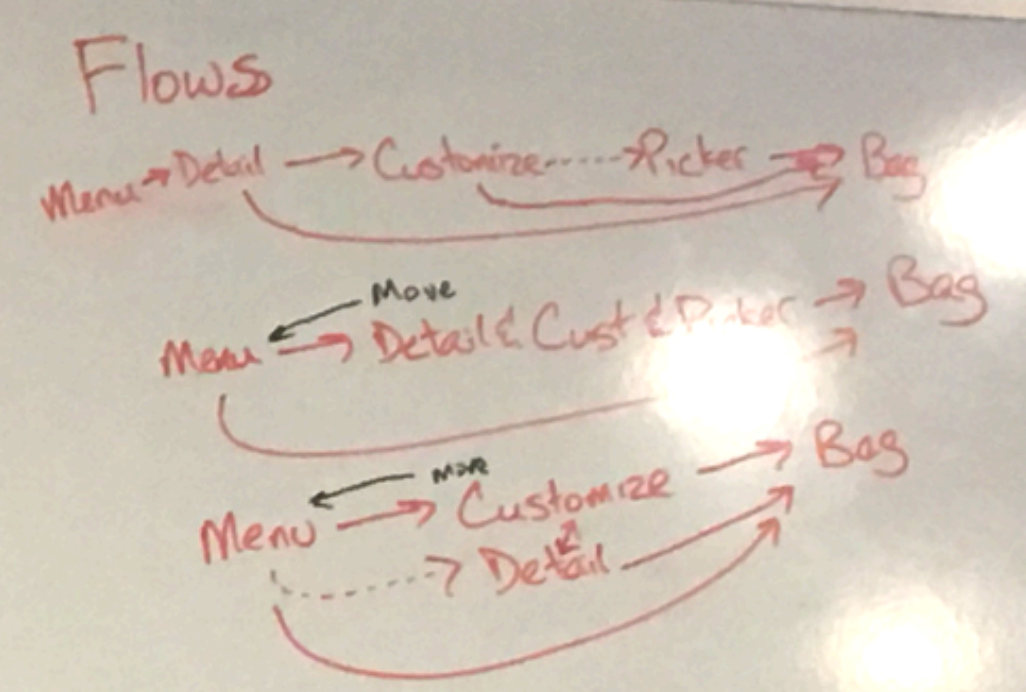 Flows
Menu → Detail → Customize ----> Picker → Bag
Move
Menu → Detail & Cust & Picker → Bag
More
Menu → Customize → Bag
Detail